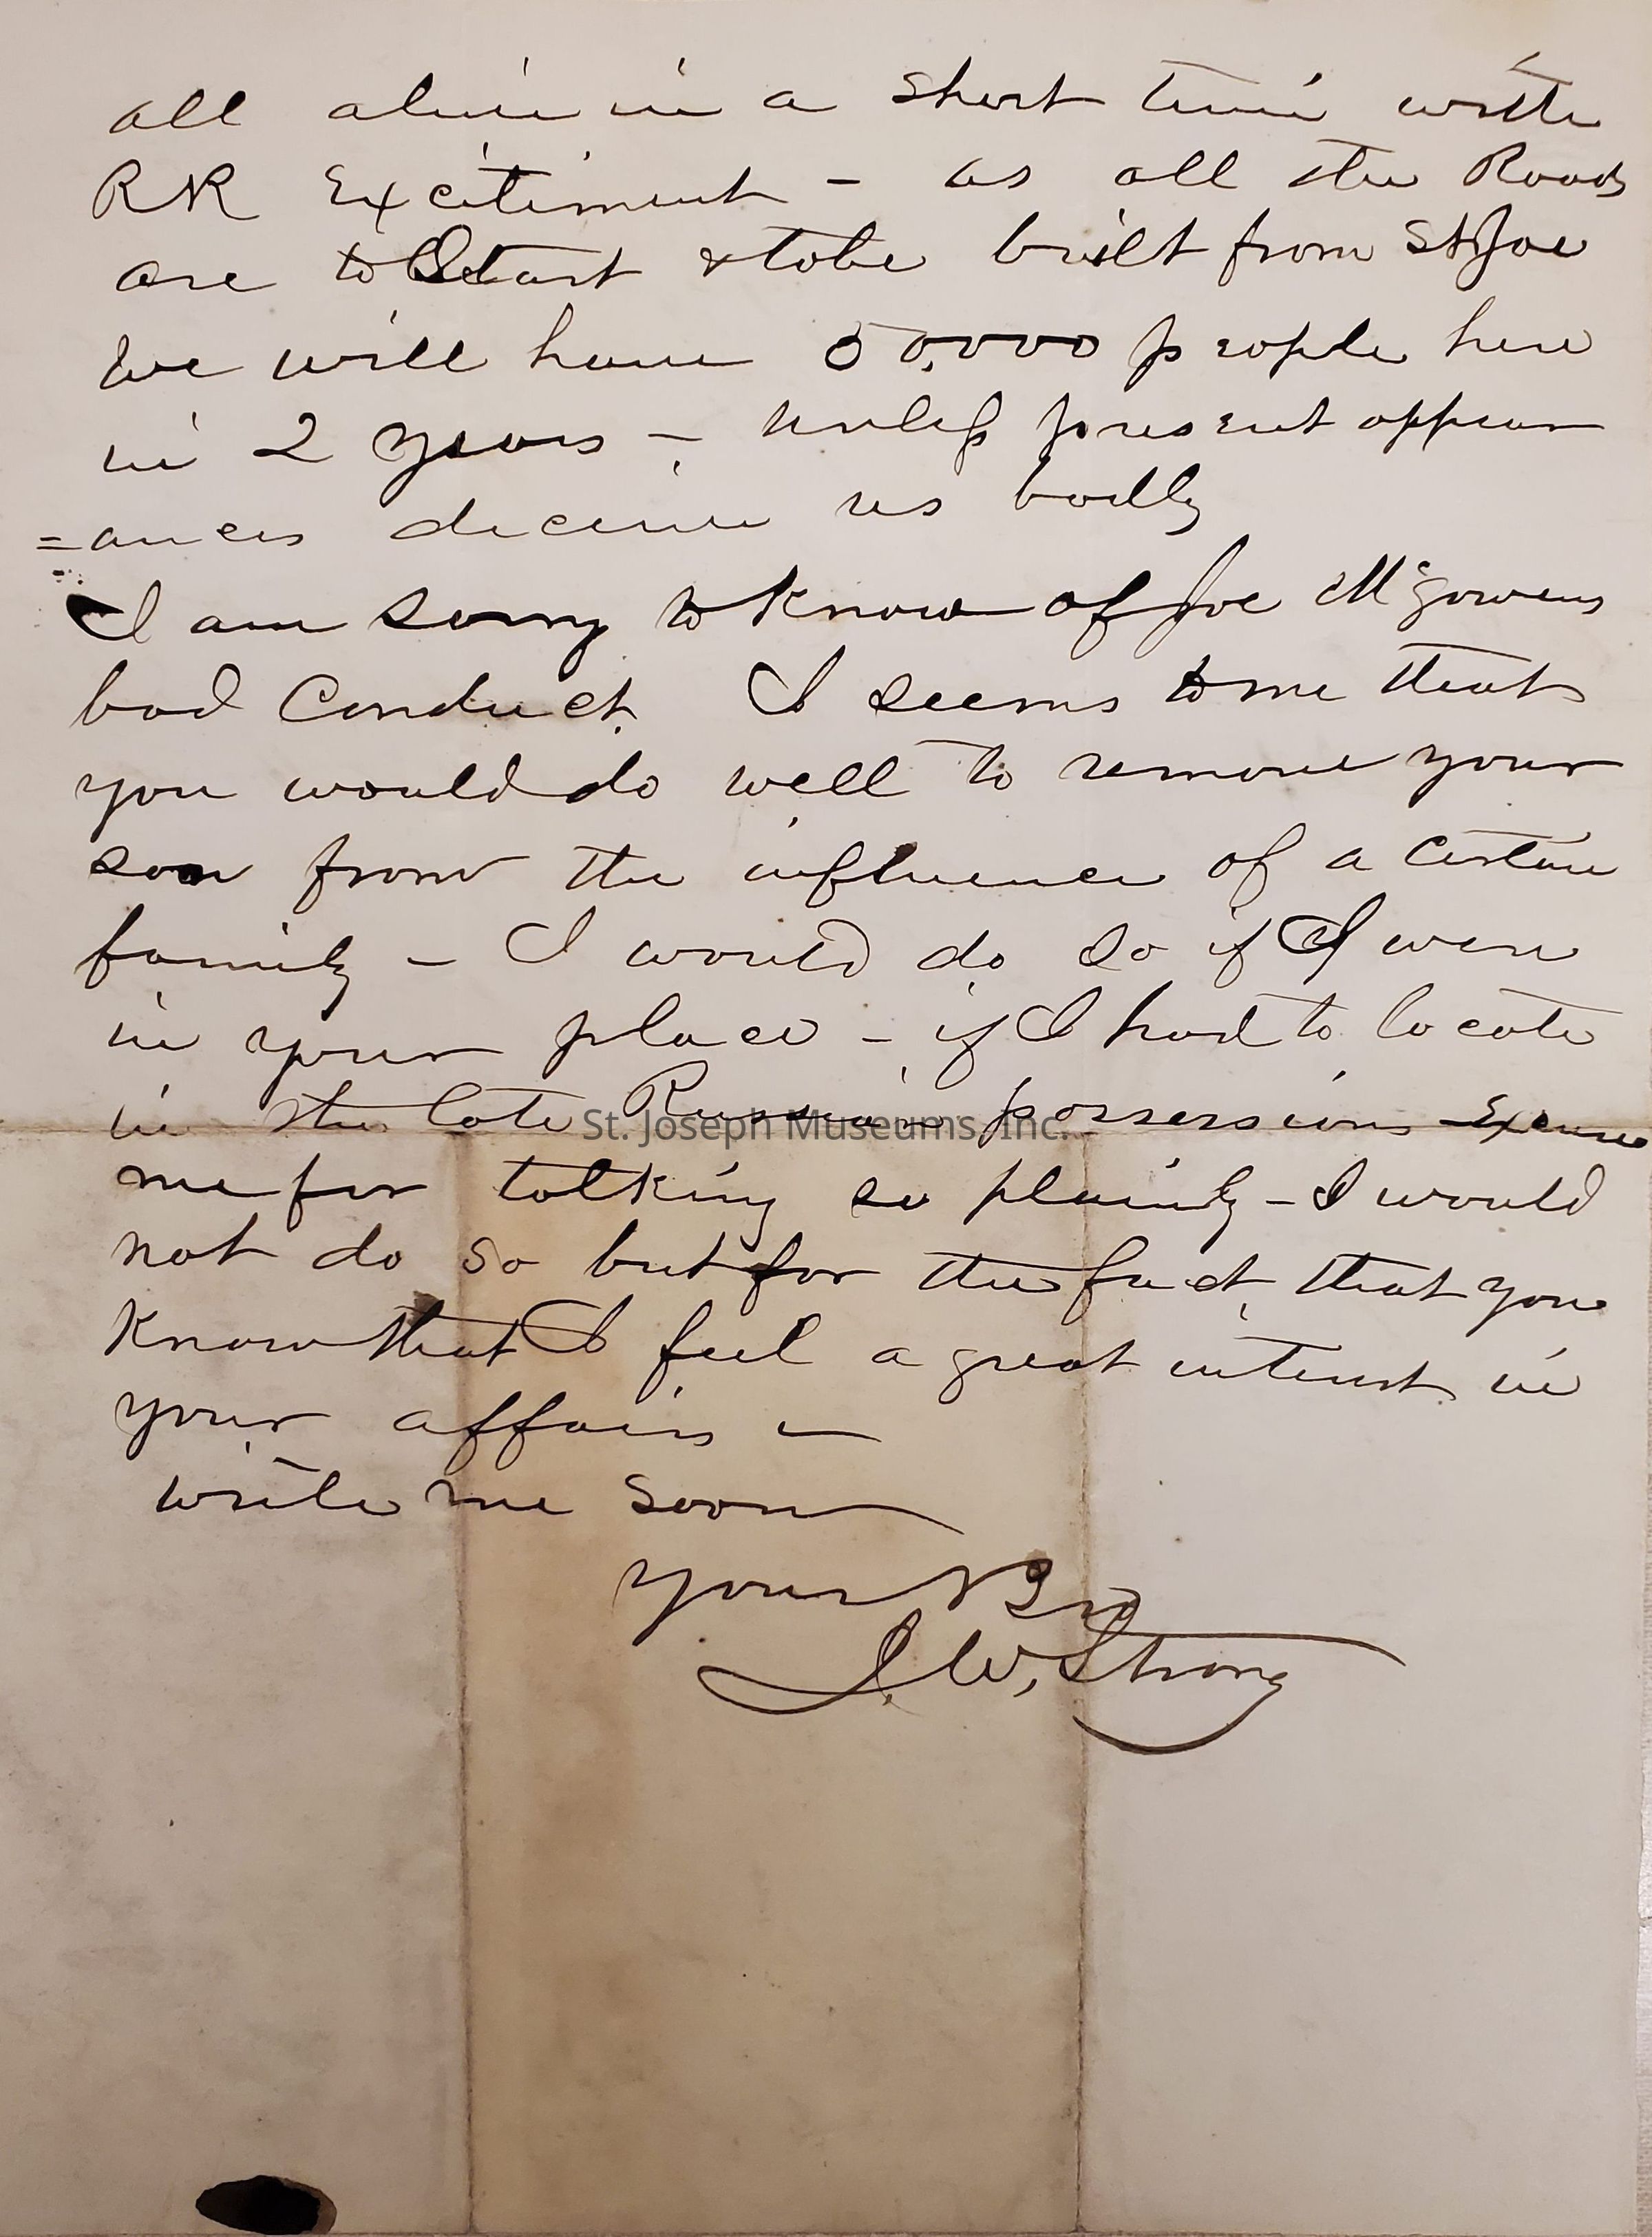 all alive in a short time with
RR Excitement – as all the Roads
are to Start & to be built from St Joe
We will have 50,000 people here
in 2 years – unless present appear
=ances deceive us badly
I am sorry to know of Joe McGowens
bad Conduct. I seems to me that
you would do well to remove your
son from the influence of a certain
family – I would do so if I were
in your place – if I had to locate
in the late Russian possessions Excuse
me for talking so plainly – I would
not do so but for the fact, that you
Know that I feel a great interest in
your affairs –
write me soon
your Bro
J. W. Strong
St. Joseph Museums, Inc.